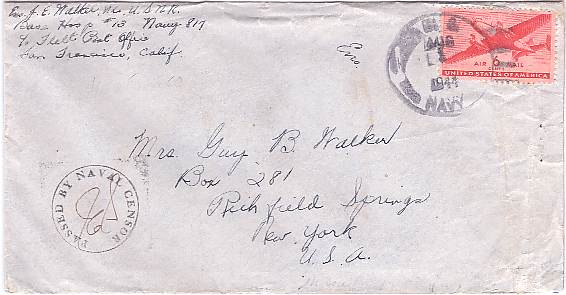 Ens. J. E. Walker, (NC) U.S.N.R.
Base Hosp #13 Navy 817
℅ Fleet Post Office
San Francisco, Calif.
U.S.
AUG
1944
NAVY
AIR 6 MAIL
CENTS
UNITED STATES OF AMERICA
Mrs. Guy B. Walker
Box 281
Richfield Springs
New York
U.S.A.
PASSED BY NAVAL CENSOR